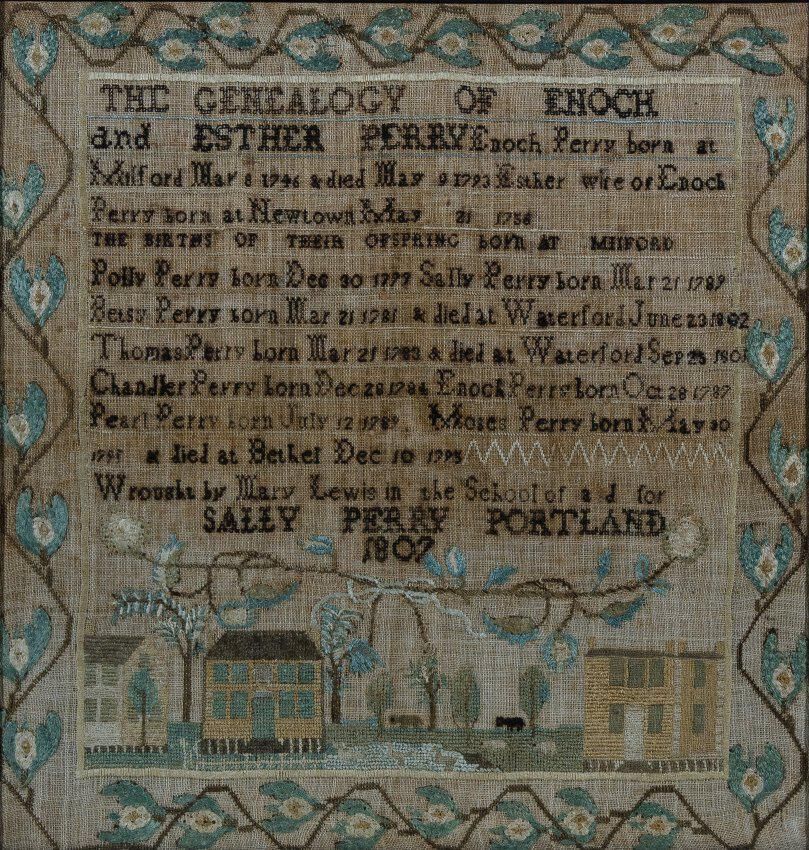 THE GENEALOGY OF ENOCH
and ESTHER PERRY Enoch Perry born at
Milford Mar 8 1746 & died May 9 1793 Esther wife of Enoch
Perry born at Newtown May 21 1758
THE BIRTHS OF THEIR OFSPRING BORN AT MILFORD
Polly Perry born Dec 30 1777 Sally Perry born Mar 21
Betsy Perry born Mar 21 1781 & died at Waterford June 23 1802
Thomas Perry born Mar 21 1783 & died at Waterford Sep 25 1801
Chandler Perry born Dec 28 Enoch Perry born Oct 28 1787
Pearl Perry born July 12 1789 Moses Perry born May 30
& died at Bethel Dec 10 1795
Wrought by Mary Lewis in the School of a d for
SALLY PERRY PORTLAND
1807